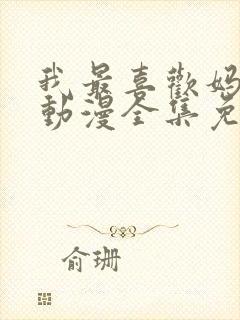 我最喜歡媽
動漫全集免
俞珊